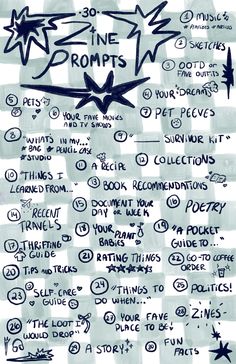 -30-
ZINE
PROMPTS
① MUSIC
② SKETCHES
③ OOTD OR
FAVE OUTFITS
④ YOUR DREAMS
⑤ PETS
⑥ YOUR FAVE MOVIES
AND TV SHOWS
⑦ PET PEEVES
⑧ "WHAT'S IN MY..."
*BAG *PENCIL CASE
*STUDIO
⑨ "____ SURVIVOR KIT"
⑩ "THINGS I
LEARNED FROM..."
⑪ A RECIPE
⑫ COLLECTIONS
⑬ BOOK RECOMMENDATIONS
⑭ RECENT
TRAVELS
⑮ DOCUMENT YOUR
DAY OR WEEK
⑯ POETRY
⑰ THRIFTING
GUIDE
⑱ YOUR
PLANT
BABIES
⑲ "A POCKET
GUIDE TO..."
⑳ TIPS AND TRICKS
㉑ RATING THINGS
㉒ GO-TO COFFEE
ORDER
㉓ SELF-CARE
GUIDE
㉔ "THINGS TO
DO WHEN..."
㉕ POLITICS!
㉖ "THE LOOT I
WOULD DROP"
㉗ YOUR FAVE
PLACE TO BE
㉘ ZINES
㉙ A STORY
㉚ FUN
FACTS